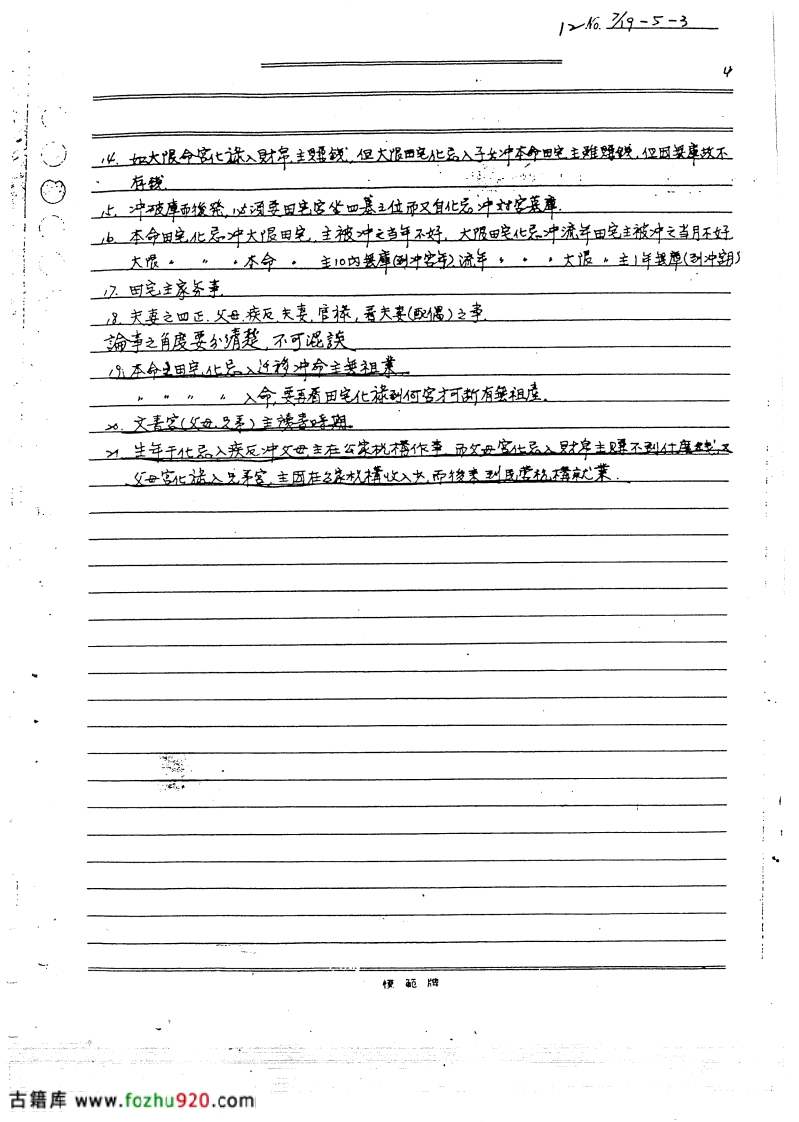 12 No. 7/19-5-3
4
14. 如大限命宮化祿入財帛主賺錢,但大限田宅化忌入子女冲本命田宅主雖賺錢,但因無庫故不
存錢
15. 冲破庫而後発,必須要田宅宮坐四墓之位而又自化忌冲对宮墓庫.
16. 本命田宅化忌冲大限田宅,主被冲之当年不好,大限田宅化忌冲流年田宅主被冲之当月不好
大限〃〃〃本命〃主10內無庫(到冲宮年)流年〃〃〃大限〃主1年無庫(到冲宮月)
17. 田宅主家务事.
18. 夫妻之四正.父母.疾厄.夫妻.官祿,看夫妻(配偶)之事.
論事之角度要分清楚,不可混談
19. 本命是田宅化忌入迁移冲命主無祖業
〃〃〃〃入命,要再看田宅化祿到何宮才可断有無祖產.
20. 文書宮(父母.兄弟)主讀書時期.
21. 生年干化忌入疾厄冲父母主在公家机構作事,而父母宮化忌入財帛主賺不到什麼錢,又
父母宮化祿入兄弟宮,主因在公家机構收入少,而後來到民营机構就業.
模範牌
古籍库 www.fozhu920.com